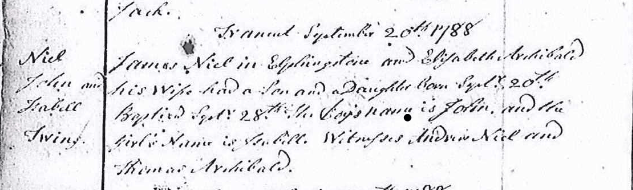 Jack.
Tranent September 20th 1788
Niel James Niel in Elphingstone and Elisabeth Archibald
John and his Wife had a Son and a daughter Born Sept.r 20th
Isabell Baptized Sept.r 28th The Boys name is John. and the
Twins. Girl's Name is Isabell. Witnesses Andrew Niel and
Thomas Archibald.